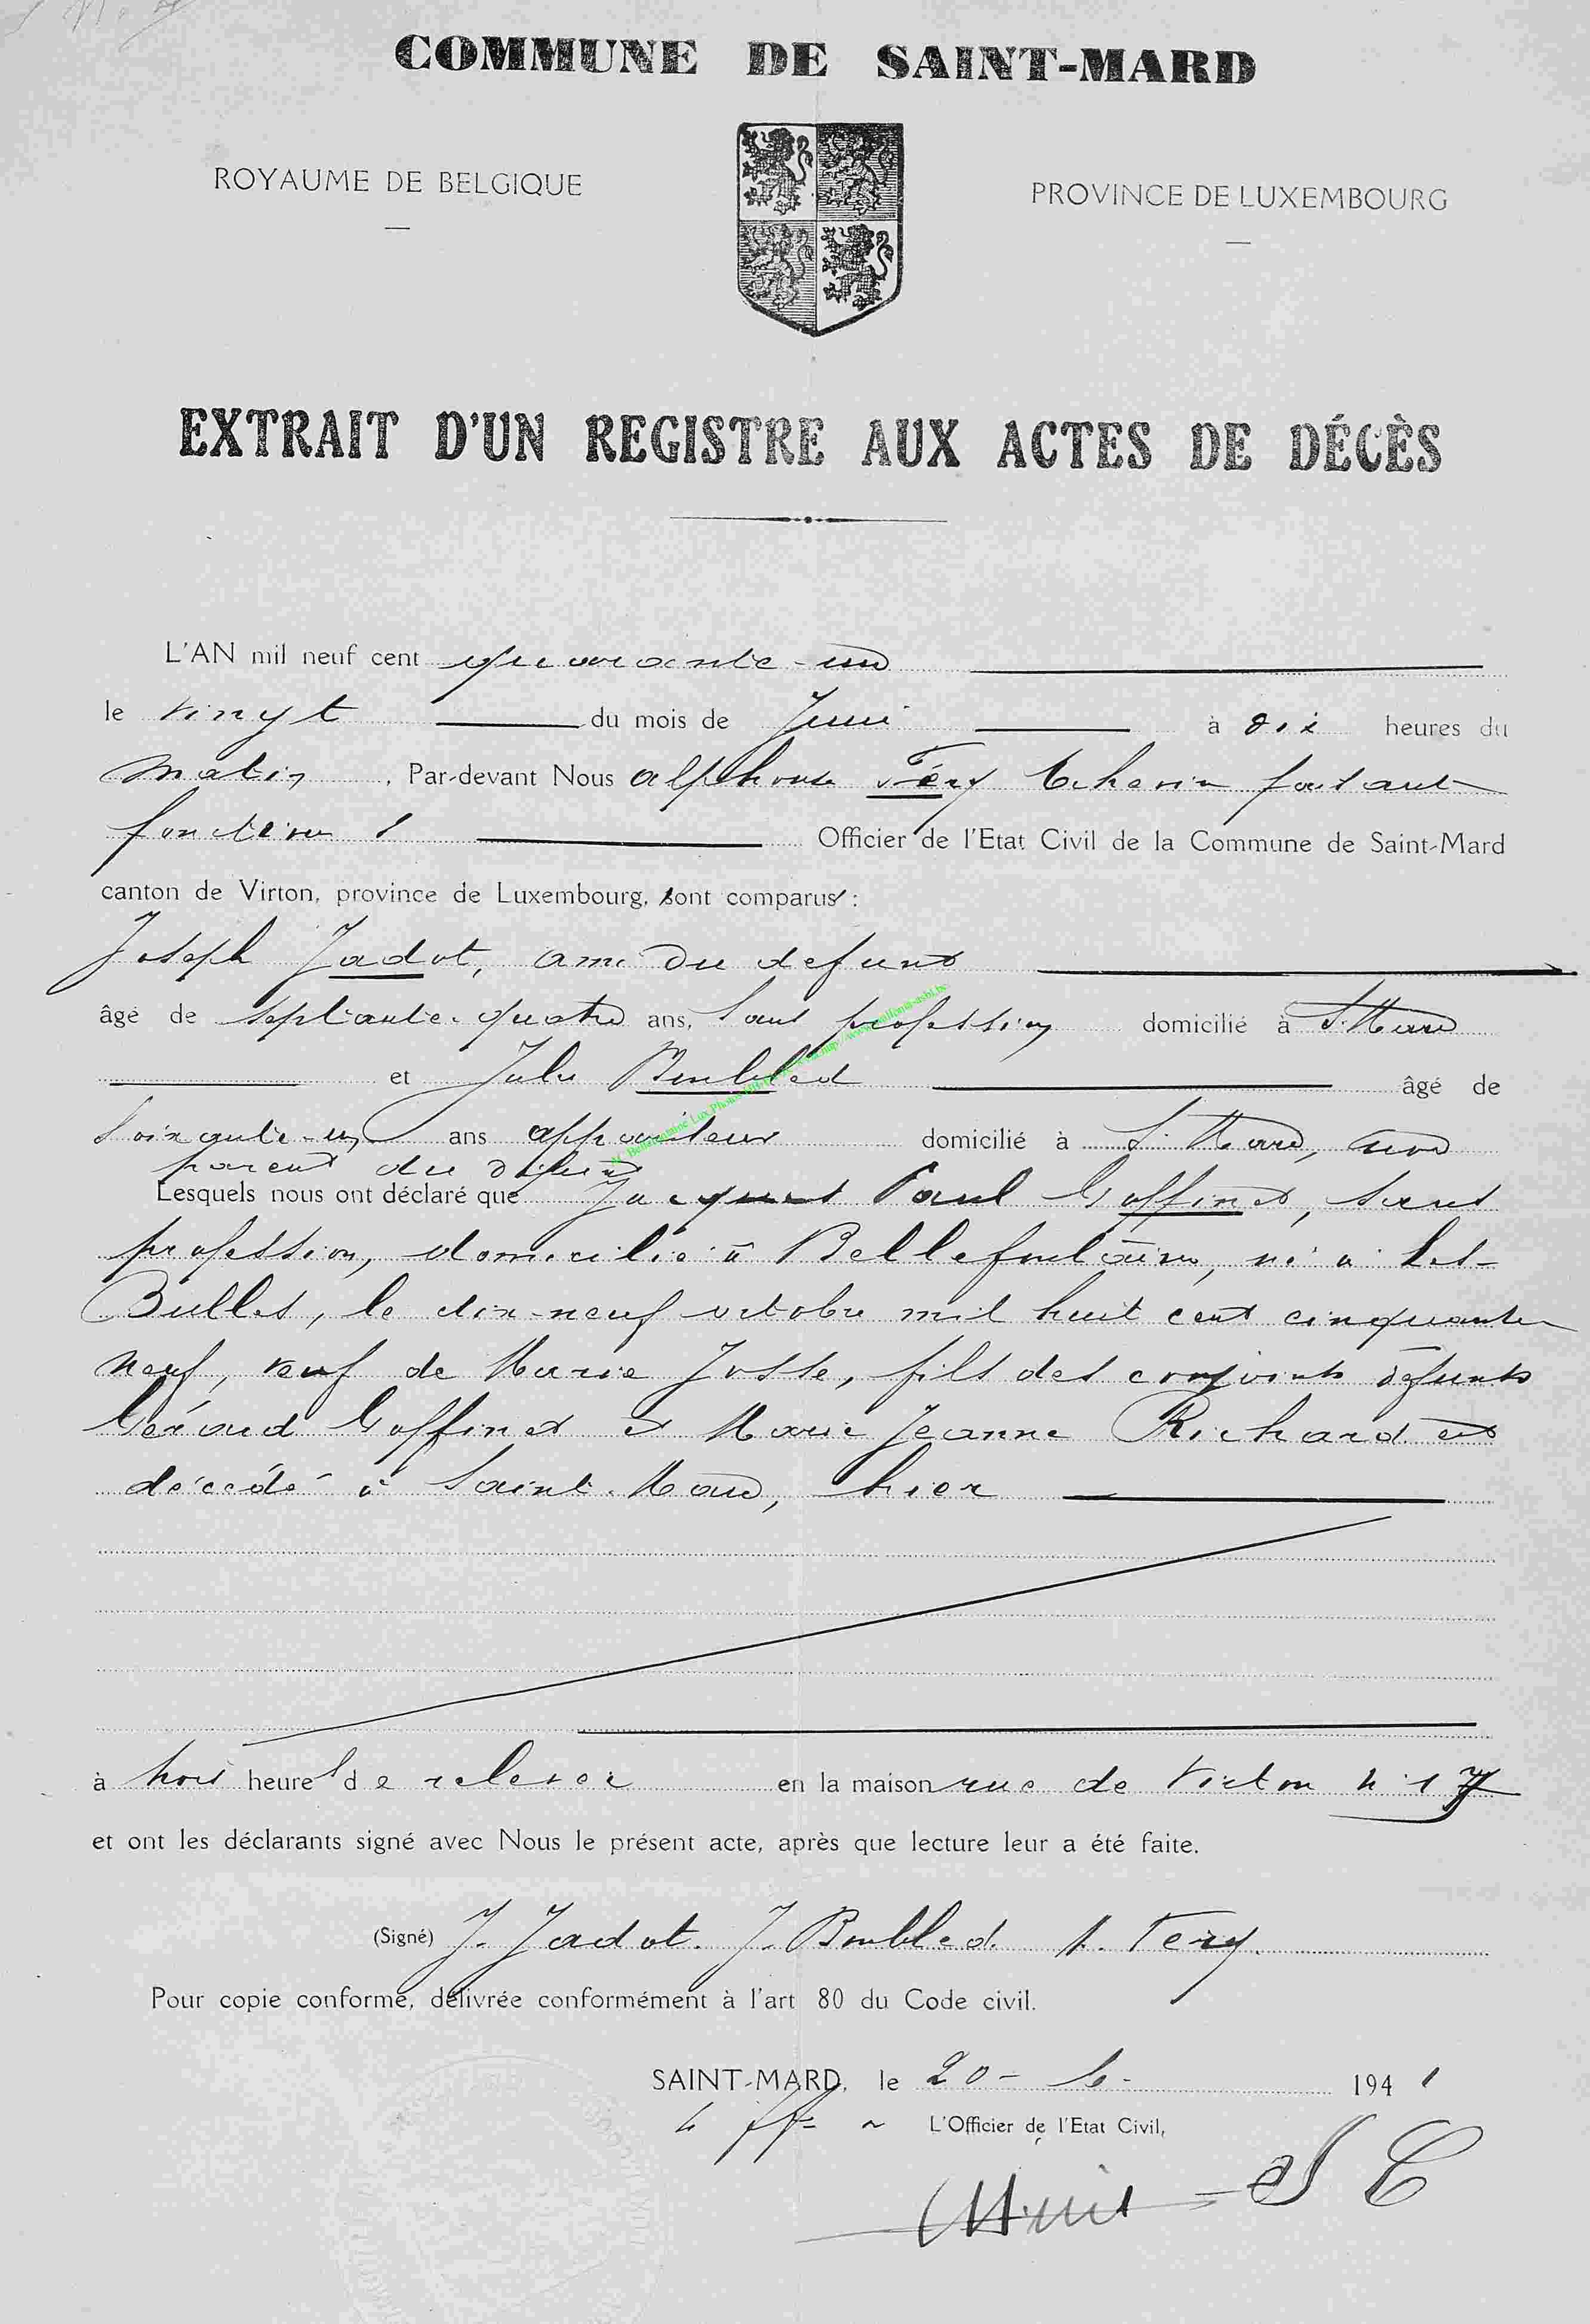 COMMUNE DE SAINT-MARD
ROYAUME DE BELGIQUE
PROVINCE DE LUXEMBOURG
EXTRAIT D'UN REGISTRE AUX ACTES DE DÉCÈS
L'AN mil neuf cent quarante-un
le vingt du mois de Juin à dix heures du
matin, Par-devant Nous Alphonse Féry Echevin faisant
fonctions Officier de l'Etat Civil de la Commune de Saint-Mard
canton de Virton, province de Luxembourg, sont comparus :
Joseph Jadot, ami du défunt
âgé de septante-quatre ans, sans profession domicilié à St Mard
et Jules Boulled âgé de
soixante-un ans appariteur domicilié à St Mard, non
parent du défunt
Lesquels nous ont déclaré que Jacques Paul Goffinet, sans
profession, domicilié à Bellefontaine, né à Les-
Bulles, le dix-neuf octobre mil huit cent cinquante
neuf, veuf de Marie Josse, fils des conjoints défunts
Gérard Goffinet et Marie Jeanne Richard est
décédé à Saint-Mard, hier
à trois heures de relevée en la maison rue de Virton n° 17
et ont les déclarants signé avec Nous le présent acte, après que lecture leur a été faite.
(Signé) J. Jadot. J. Boulled. A. Féry.
Pour copie conforme, délivrée conformément à l'art 80 du Code civil.
SAINT-MARD, le 20-6-1941
L'Officier de l'Etat Civil,